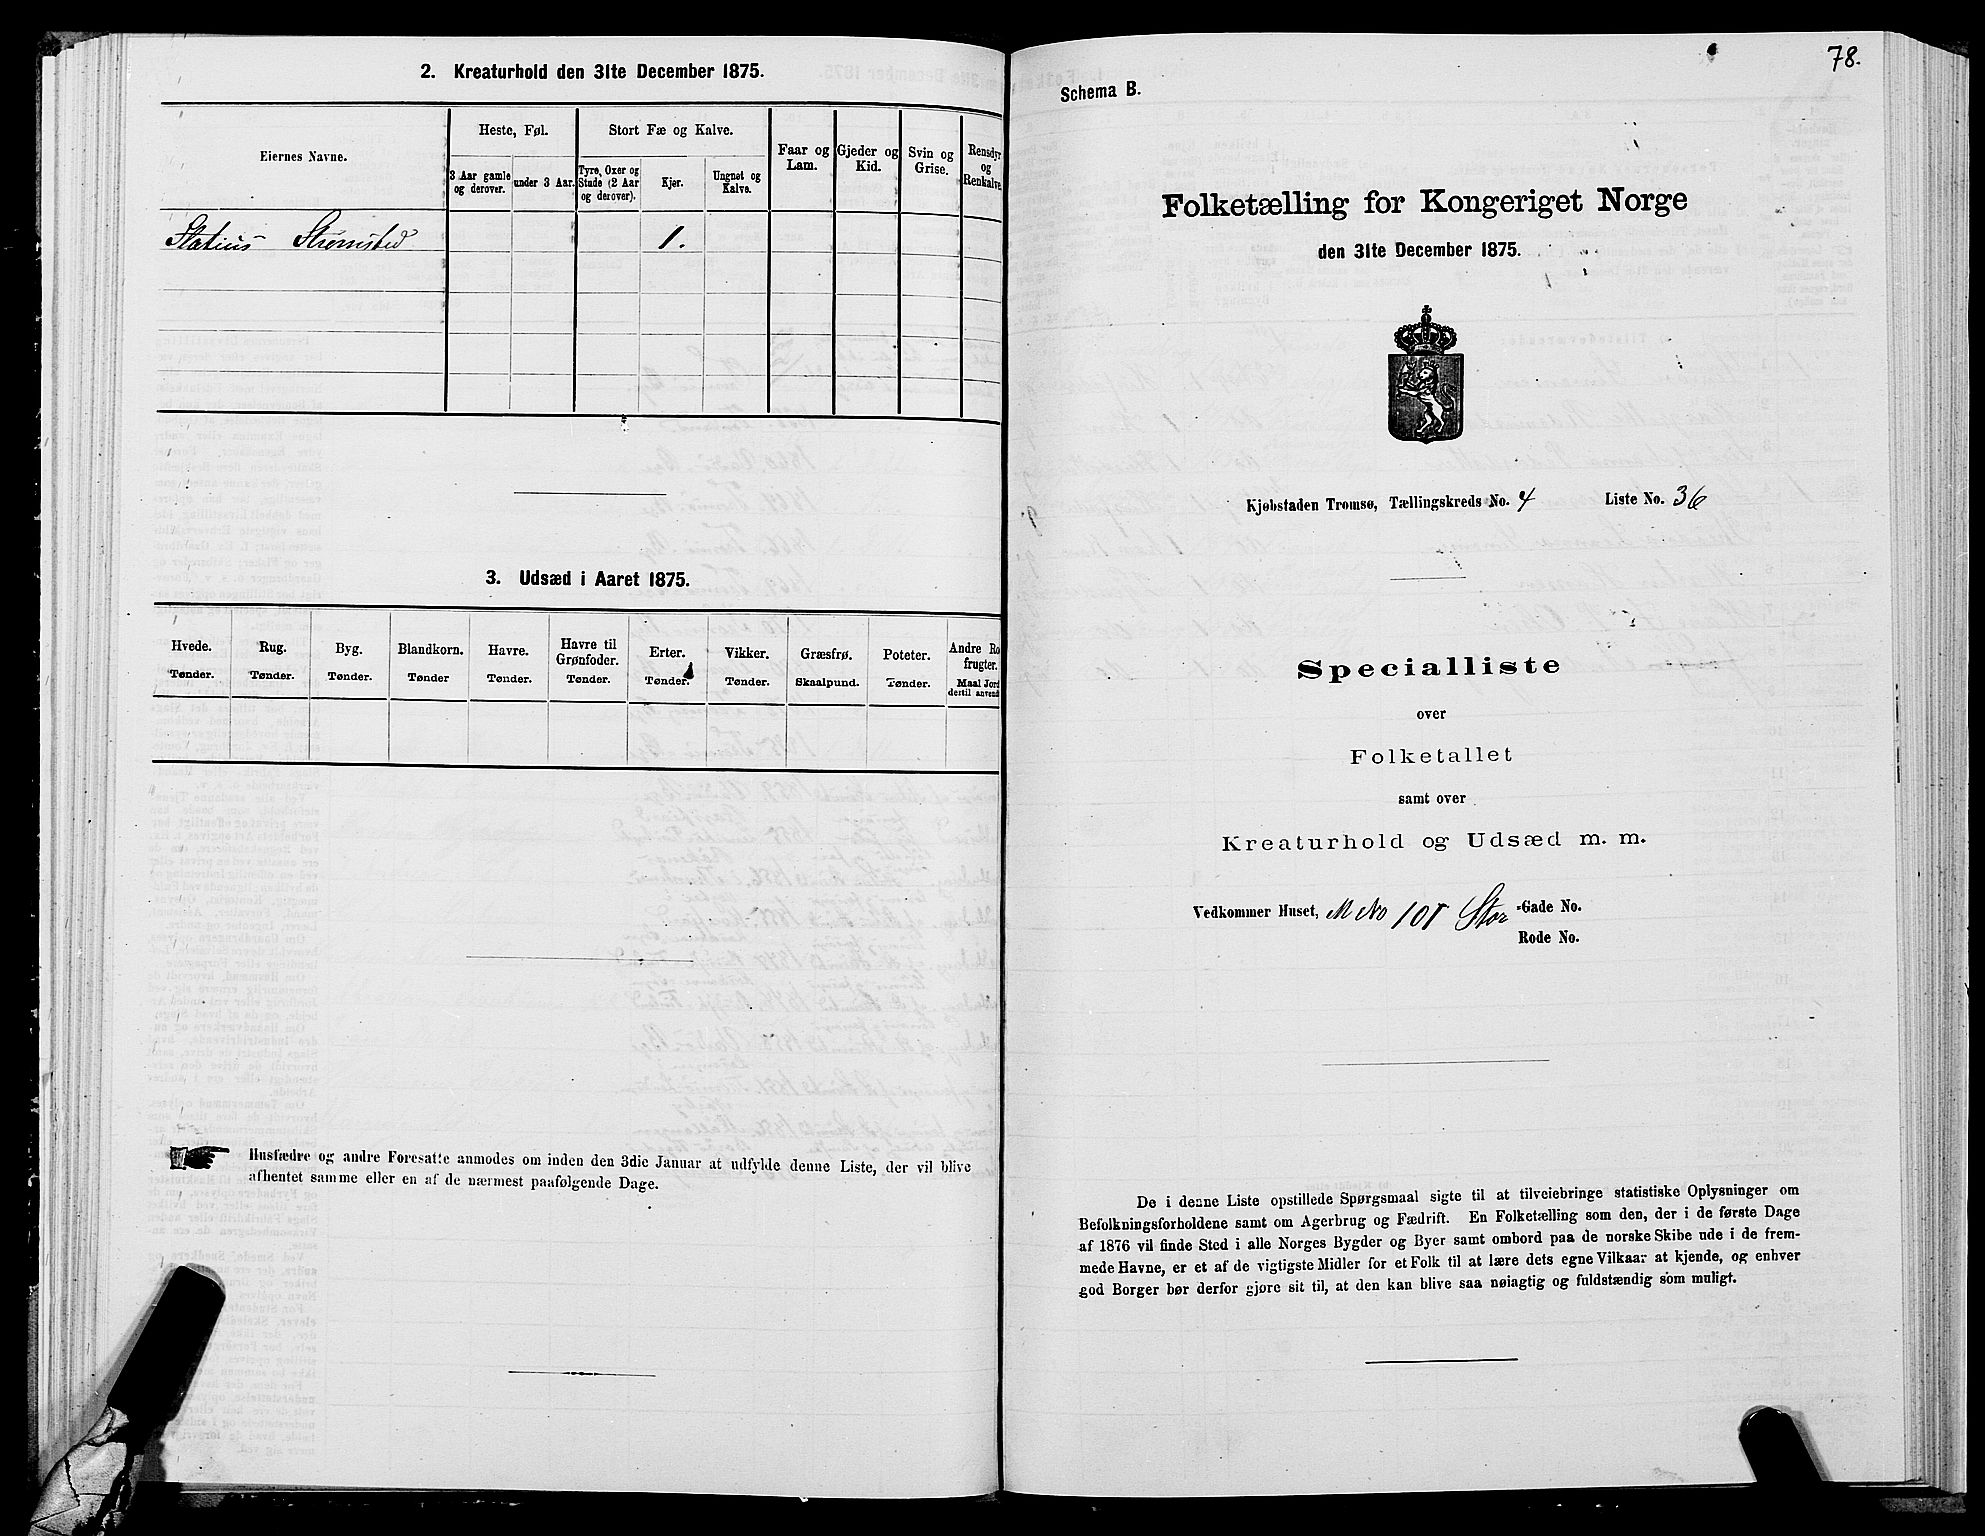 2. Kreaturhold den 31te December 1875.
Eiernes Navne.
Heste, Føl.
Stort Fæ og Kalve.
Faar og Lam.
Gjeder og Kid.
Svin og Grise.
Rensdyr og Renkalve.
3 Aar gamle og derover.
under 3 Aar.
Tyre, Oxer og Stude (2 Aar og derover).
Kjør.
Ungnøt og Kalve.
Statius Strømsted 1.
3. Udsæd i Aaret 1875.
Hvede. Rug. Byg. Blandkorn. Havre. Havre til Grønfoder. Erter. Vikker. Græsfrø. Poteter. Andre Ro frugter.
Tønder. Tønder. Tønder. Tønder Tønder. Tønder. Tønder. Tønder. Skaalpund. Tønder. Maal Jord dertil anvend
Husfædre og andre Foresatte anmodes om inden den 3die Januar at udfylde denne Liste, der vil blive
afhentet samme eller en af de nærmest paafølgende Dage.
78.
Schema B.
Folketælling for Kongeriget Norge
den 31te December 1875.
Kjøbstaden Tromsø, Tællingskreds No. 4 Liste No. 36
Specialliste
over
Folketallet
samt over
Kreaturhold og Udsæd m. m.
Vedkommer Huset, M No 101 Stor-Gade No.
Rode No.
De i denne Liste opstillede Spørgsmaal sigte til at tilveiebringe statistiske Oplysninger om
Befolkningsforholdene samt om Agerbrug og Fædrift. En Folketælling som den, der i de første Dage
af 1876 vil finde Sted i alle Norges Bygder og Byer samt ombord paa de norske Skibe ude i de frem-
mede Havne, er et af de vigtigste Midler for et Folk til at lære dets egne Vilkaar at kjende, og enhver
god Borger bør derfor gjøre sit til, at den kan blive saa nøiagtig og fuldstændig som muligt.